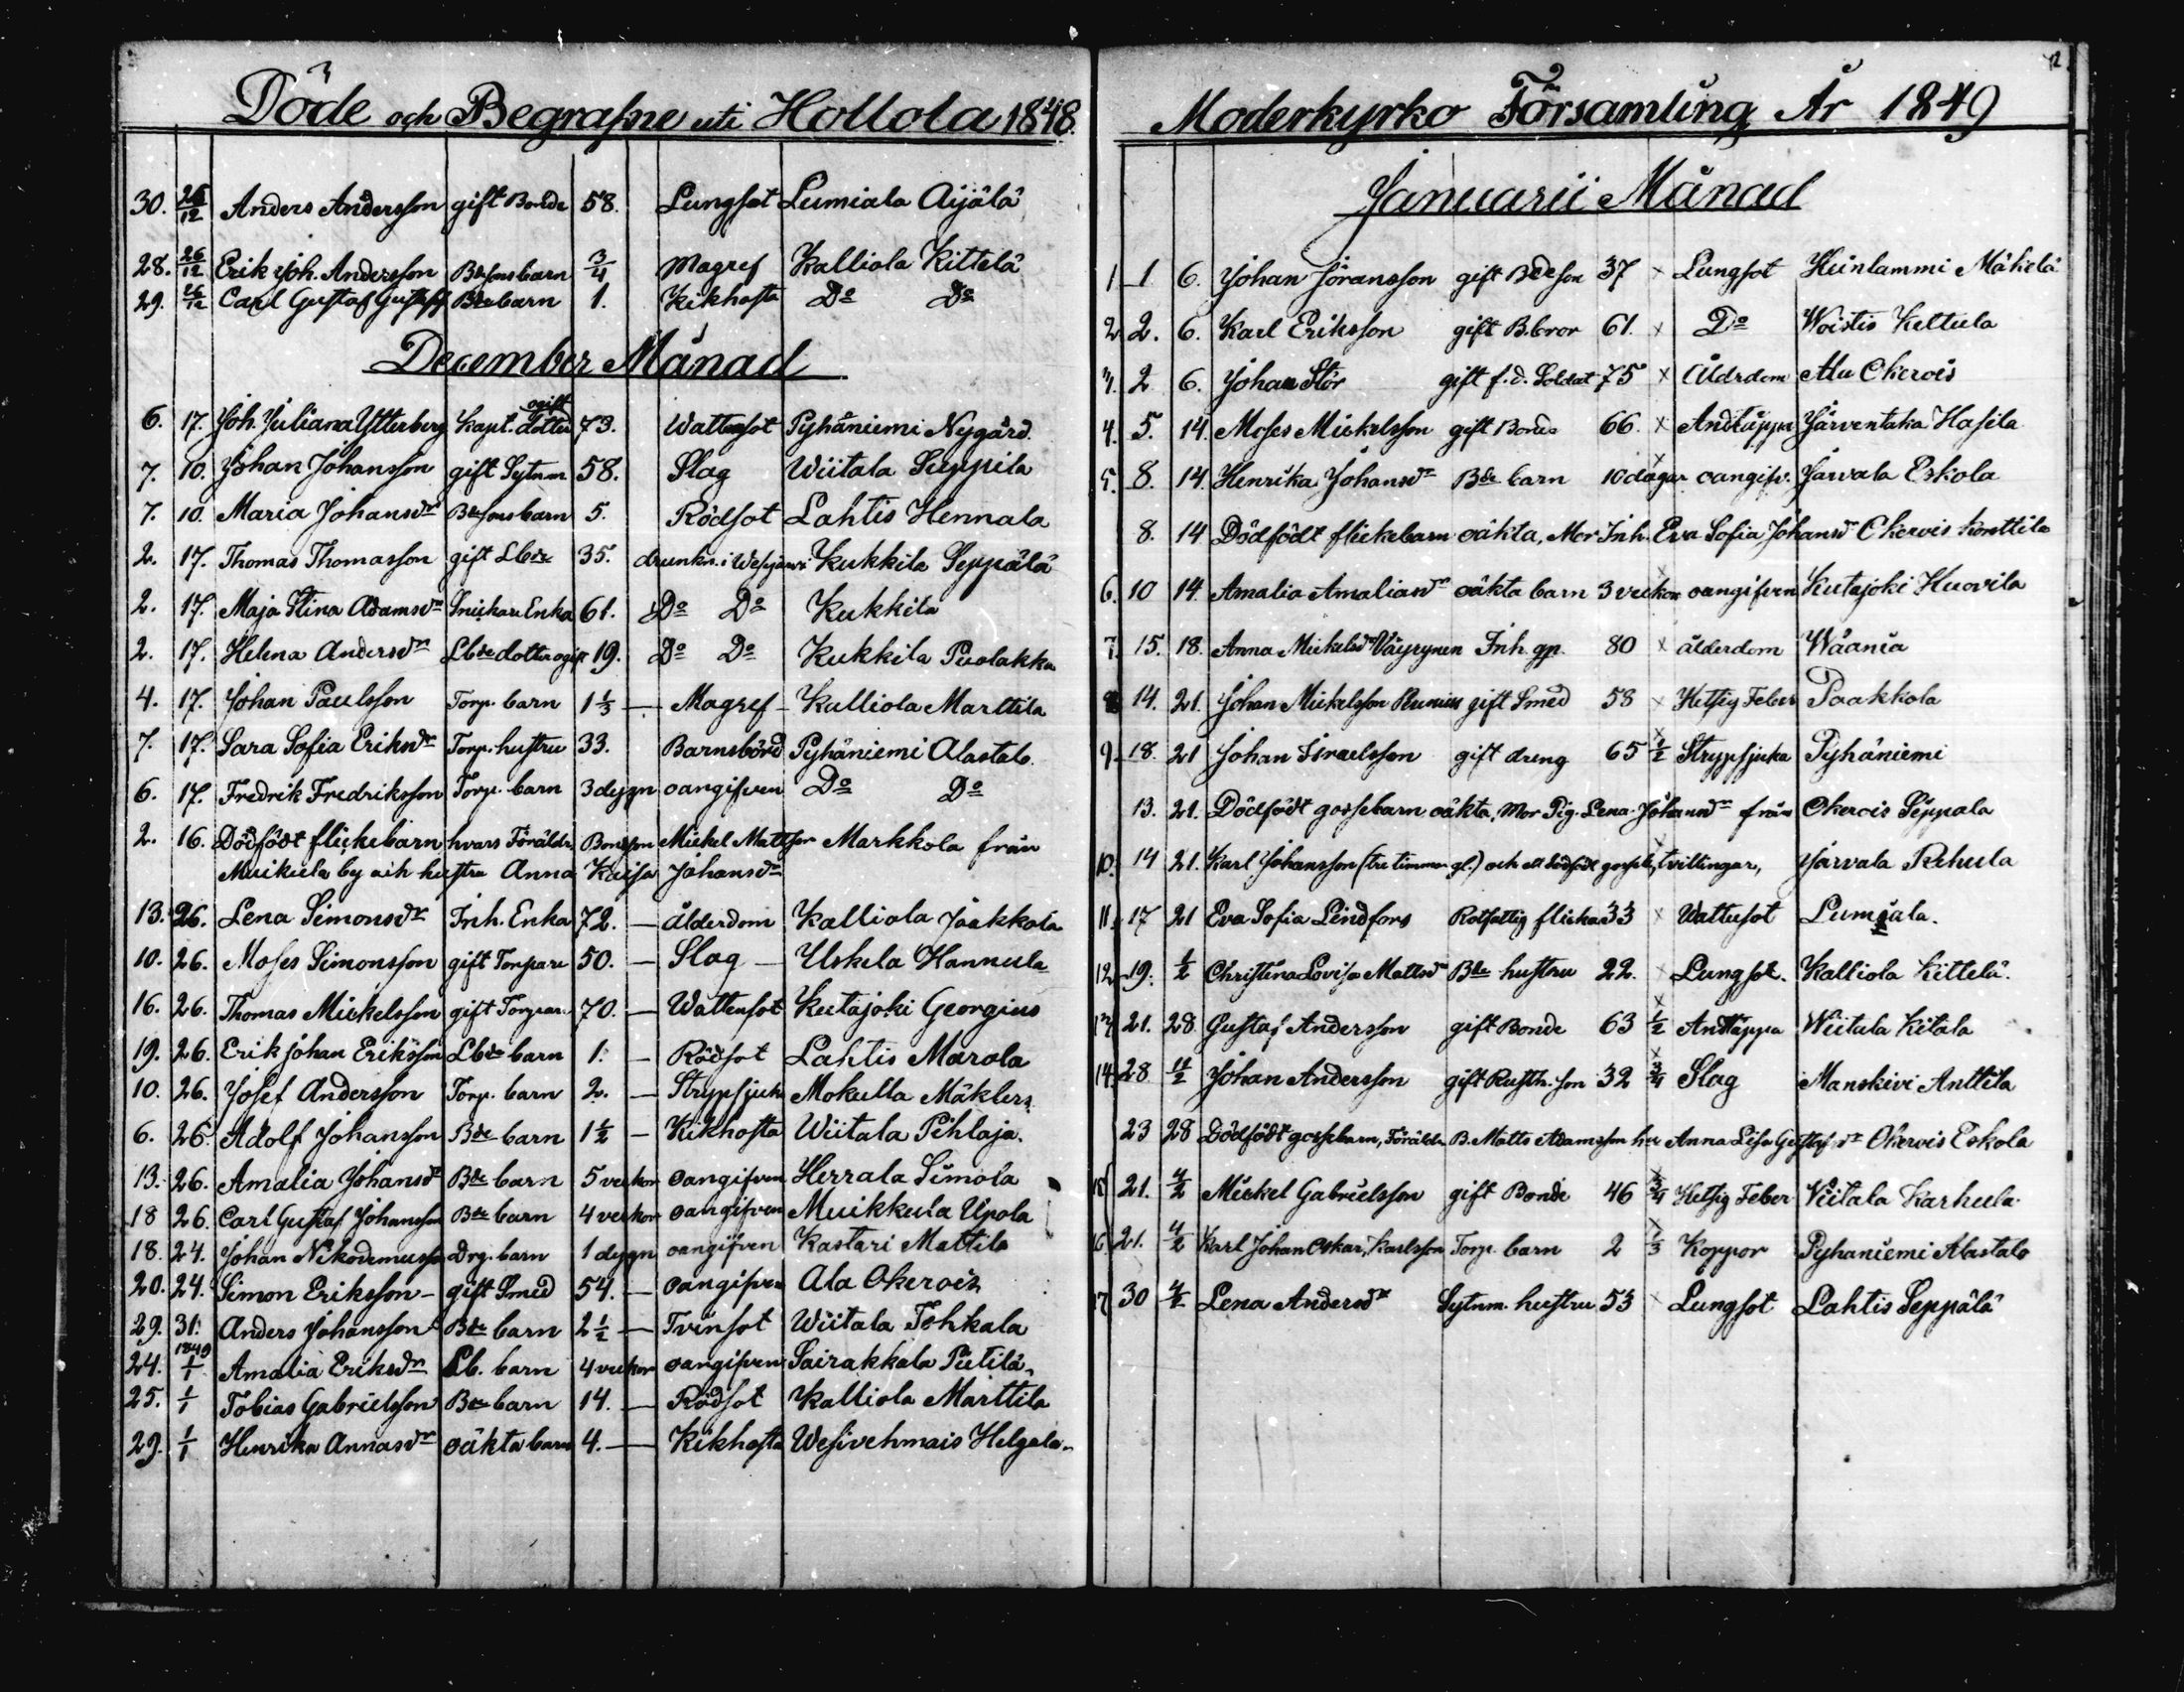 Döde och Begrafne uti Hollola 1848.
30. 26/12 Anders Andersson gift Bonde 58. Lungsot Lumiala Äijälä
28. 26/12 Erik Joh. Andersson Bdesons barn 3/4 Magref Kalliola Kittelä
29. 26/12 Carl Gustaf Gustafs Bde barn 1. Kikhosta Do Do
December Månad
6. 17. Joh. Juliana Ytterberg Kapt. dotter ogift 73. Wattusot Pyhäniemi Nygård.
7. 10. Johan Johansson gift Sytnm 58. Slag Wiitala Seppila
7. 10. Maria Johansdr Bdesons barn 5. Rödsot Lahtis Hennala
2. 17. Thomas Thomasson gift Lbde 35. drunkn. i Wesijärvi Kukkila Seppälä
2. 17. Maja Stina Adamsdr Snickare Enka 61. Do Do Kukkila
2. 17. Helena Andersdr Lbde dotter ogift 19. Do Do Kukkila Puolakka
4. 17. Johan Paulsson Torp. barn 1 1/3 — Magref – Kalliola Marttila
7. 17. Sara Sofia Eriksdr Torp. hustru 33. Barnsbörd Pyhäniemi Alastalo.
6. 17. Fredrik Fredriksson Torp. barn 3 dygn oangifven Do Do
2. 16. Dödfödt flickebarn hvars Föräldr. Bonsson Mickel Mattsson Markkola från
Muikula by och hustru Anna Kaisa Johansdr
13. 26. Lena Simonsdr Inh. Enka 72. — Ålderdom Kalliola Jaakkola
10. 26. Moses Simonsson gift Torpare 50. — Slag — Uskela Hannula
16. 26. Thomas Mickelsson gift Torpar. 70. — Wattusot Kutajoki Georgius
19. 26. Erik Johan Eriksson Lbde barn 1. — Rödsot Lahtis Marola
10. 26. Josef Andersson Torp. barn 2. — Strypsjuk Mokulla Mäklers
6. 26. Adolf Johansson Bde barn 1 1/2 — Kikhosta Wiitala Pihlaja.
13. 26. Amalia Johansdr Bde barn 5 veckor oangifven Herrala Simola
18 26. Carl Gustaf Johansson Bde barn 4 veckor oangifven Muikkula Upola
18. 24. Johan Nikodemusson Drg. barn 1 dygn oangifven Kastari Mattila
20. 24. Simon Eriksson – gift Smed 54. — oangifven Ala Okerois
29. 31. Anders Johansson Bde barn 2 1/2 — Tvinsot Wiitala Tohkala
24. 1849 1/1 Amalia Eriksdr Lb. barn 4 veckor oangifven Sairakkala Pietilä
25. 1/1 Tobias Gabrielsson Bde barn 14. — Rödsot Kalliola Marttila
29. 1/1 Henrika Annasdr oäkta barn 4. — Kikhosta Wesivehmais Helgala
Moderkyrko Församling År 1849
Januarii Månad
1 1 6. Johan Jöransson gift Bdeson 37 x Lungsot Heinlammi Mäkelä
2 2. 6. Karl Eriksson gift B.bror 61. x Do Woistis Keltula
3. 2 6. Johan Stör gift f.d. Soldat 75 x Ålderdom Alu Okerois
4. 5. 14. Moses Mickelsson gift Bonde 66. x Andtäppa Järventaka Hasila
5. 8. 14. Henrika Johansdr Bde barn 10 dagar oangifv. Järvala Eskola
8. 14 Dödfödt flickebarn oäkta, Mor Inh. Eva Sofia Johansdr Okerois Konttila
6. 10 14. Amalia Amaliasdr oäkta barn 3 veckor oangifven Kutajoki Huovila
7. 15. 18. Anna Mickelsdr Väyrynen Inh. gp. 80 x ålderdom Wäänia
8 14. 21. Johan Mickelsson gift Smed 58 x Hetsig Feber Paakkola
9. 18. 21 Johan Israelsson gift dreng 65 1/2 Strypsjuka Pyhäniemi
13. 21. Dödfödt gossebarn oäkta, Mor Pig. Lena Johansdr från Okerois Seppala
10. 14 21. Karl Johansson (tre timmar gl.) och ett dödfödt gossebn, tvillingar, Järvala Rehula
11. 17 21 Eva Sofia Lindfors Rotfattig flicka 33 x Wattusot Lumiala.
12. 19. 4/2 Christina Lovisa Mattsdr Bde hustru 22. x Lungsot. Kalliola Kittelä.
13. 21. 28. Gustaf Andersson gift Bonde 63 1/2 Andtäppa Wiitala Kitala
14. 28. 11/2 Johan Andersson gift Rusth. son 32 3/4 Slag Manskivi Anttila
23 28 Dödfödt gossebarn, Föräldr. B. Matts Adamsson hu Anna Lisa Gustafsdr Okerois Eskola
15 21. 4/2 Mickel Gabrielsson gift Bonde 46 3/4 Hetsig Feber Wiitala Karhula
16 21. 4/2 Karl Johan Oskar Karlsson Torp. barn 2 1/3 Koppor Pyhäniemi Alastalo
17 30 4/2 Lena Andersdr Sytnm. hustru 53 x Lungsot Lahtis Seppälä